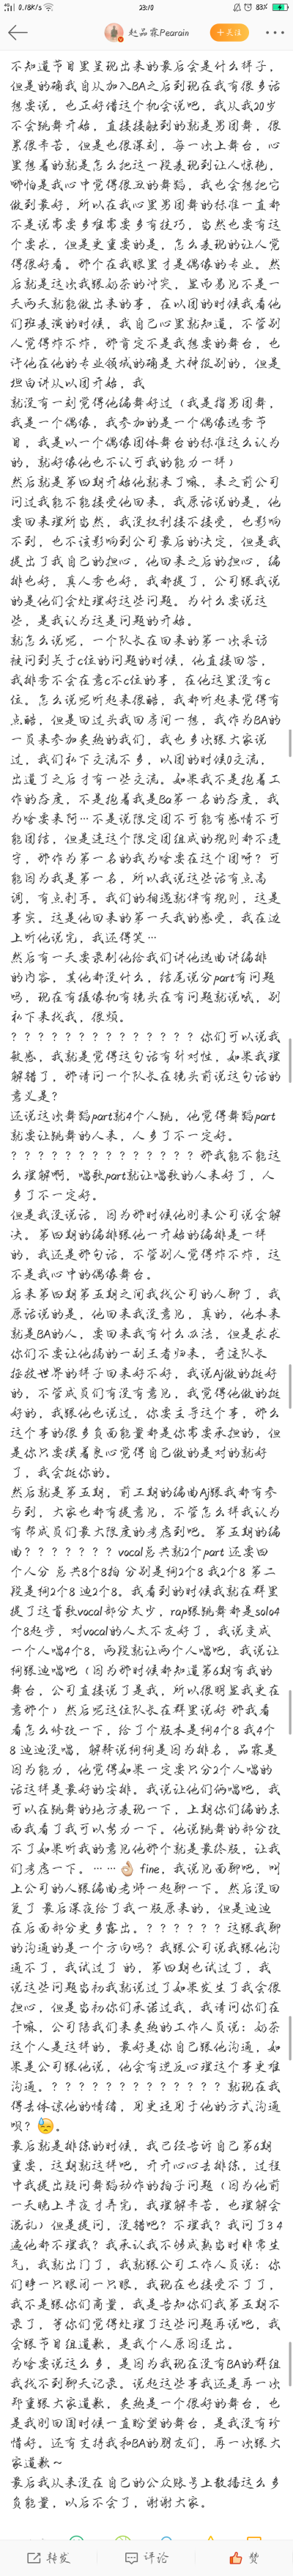 0.18K/s
23:10
83%
赵品霖Pearain
+关注
不知道节目里呈现出来的最后会是什么样子，
但是的确我自从加入BA之后到现在我有很多话
想要说，也正好借这个机会说吧，我从我20岁
不会跳舞开始，直接接触到的就是男团舞，很
累很辛苦，但是也很深刻，每一次上舞台，心
里想着的就是怎么把这一段表现到让人惊艳，
哪怕是我心中觉得很丑的舞蹈，我也会想把它
做到最好，所以在我心里男团舞的标准一直都
不是说需要多难需要多有技巧，当然也要有这
个要求，但是更重要的是，怎么表现的让人觉
得很好看。那个在我眼里才是偶像的专业。然
后就是这次我跟奶茶的冲突，显而易见不是一
天两天就能做出来的事，在以团的时候我看他
们班表演的时候，我自己心里就知道，不管别
人觉得炸不炸，那肯定不是我想要的舞台，也
许他在他的专业领域的确是大神级别的，但是
坦白讲从以团开始，我
就没有一刻觉得他编舞好过（我是指男团舞，
我是一个偶像，我参加的是一个偶像选秀节
目，我是以一个偶像团体舞台的标准这么认为
的，就好像他也不认可我的能力一样）
然后就是第四期开始他就来了嘛，来之前公司
问过我能不能接受他回来，我原话说的是，他
要回来理所当然，我没权利接不接受，也影响
不到，也不该影响到公司最后的决定，但是我
提出了我自己的担心，他回来之后的担心，编
排也好，真人秀也好，我都提了，公司跟我说
的是他们会处理好这些问题。为什么要说这
些，是我认为这是问题的开始。
就怎么说呢，一个队长在回来的第一次采访
被问到关于c位的问题的时候，他直接回答，
我排秀不会在意c不c位的事，在他这里没有c
位。怎么说呢听起来很酷，我都听起来觉得有
点酷，但是回过头我回房间一想，我作为BA的
一员来参加炙热的我们，我也多次跟大家说
过，我们私下交流不多，以团的时候0交流，
出道了之后才有一些交流。如果我不是抱着工
作的态度，不是抱着我是Ba第一名的态度，我
为啥要来阿…不是说限定团不可能有感情不可
能团结，但是连这个限定团组成的规则都不遵
守，那作为第一名的我为啥要在这个团呀？可
能因为我是第一名，所以我说这些话有点高
调，有点刺耳。我们的相遇就伴有规则，这是
事实。这是他回来的第一天我的感受，我在边
上听他说完，我还得笑…
然后有一天要录制他给我们讲他选曲讲编排
的内容，其他都没什么，结尾说分part有问题
吗，现在有摄像机有镜头在有问题就说哦，别
私下来找我，很烦。
？？？？？？？？？？？？？？你们可以说我
敏感，我就是觉得这句话有针对性，如果我理
解错了，那请问一个队长在镜头前说这句话的
意义是？
还说这次舞蹈part就4个人跳，他觉得舞蹈part
就要让跳舞的人来，人多了不一定好。
？？？？？？？？？？？？？？那我能不能这
么理解啊，唱歌part就让唱歌的人来好了，人
多了不一定好。
但是我没说话，因为那时候他刚来公司说会解
决。第四期的编排跟他一开始的编排是一样
的，我还是那句话，不管别人觉得炸不炸，这
不是我心中的偶像舞台。
后来第四期第五期之间我找公司的人聊了，我
原话说的是，他回来我没意见，真的，他本来
就是BA的人，要回来我有什么办法，但是求求
你们不要让他搞的一副王者归来，奇迹队长
拯救世界的样子回来好不好，我说Aj做的挺好
的，不管成员们有没有意见，我觉得他做的挺
好的，我跟他也说过，你要主导这个事，那么
这个事的很多负面能量都是你需要承担的，但
是你只要摸着良心觉得自己做的是对的就好
了，我会挺你的。
然后就是第五期，前三期的编曲Aj跟我都有参
与到，大家也都有提意见，不管怎么样我认为
有帮成员们最大限度的考虑到吧。第五期的编
曲？？？？？？？vocal总共就2个part 还要四
个人分 总共8个8拍 分别是栩2个8 我2个8 第二
段是栩2个8 迪2个8。我看到的时候我就在群里
提了这首歌vocal部分太少，rap跟跳舞都是solo4
个8起步，对vocal的人太不友好了，我说变成
一个人唱4个8，两段就让两个人唱吧，我说让
栩跟迪唱吧（因为那时候都知道第6期有我的
舞台，公司直接说了是我，所以很明显我更在
意那个）然后呢这位队长在群里说好 那我看
看怎么修改一下，给了个版本是栩4个8 我4个
8 迪迪没唱，解释说栩栩是因为排名，品霖是
因为能力，他觉得如果一定要只分2个人唱的
话这样是最好的安排。我说让他们俩唱吧，我
可以在跳舞的地方表现一下，上期你们编的东
西我看了我可以努力一下。他说跳舞的部分改
不了如果听我的意见他那个就是最终版，让我
们考虑一下。……👌 fine，我说见面聊吧，叫
上公司的人跟编曲老师一起聊一下。然后没回
复了 最后深夜给了我一版原来的，但是迪迪
在后面部分更多露出。？？？？？？这跟我聊
的沟通的是一个方向吗？我跟公司说我跟他沟
通不了，我试过了 的，第四期也试过了，我
说这些问题当初我就说过了如果发生了我会很
担心，但是当初你们承诺过我，我请问你们在
干嘛，公司陪我们来炙热的工作人员说：奶茶
这个人是这样的，最好是你自己跟他沟通，如
果是公司跟他说，他会有逆反心理这个事更难
沟通。？？？？？？？？？？？？？就现在我
得去体谅他的情绪，用更适用于他的方式沟通
呗？😓。
最后就是排练的时候，我已经告诉自己第6期
重要，这期就这样吧，开开心心去排练，过程
中我提出疑问舞蹈动作的拍子问题（因为他前
一天晚上半夜才弄完，我理解辛苦，也理解会
混乱）但是提问，没错吧？不理我？我问了3 4
遍他都不理我？我承认我不够成熟当时非常生
气，我就出门了，我就跟公司工作人员说：你
们睁一只眼闭一只眼，我现在也接受不了了，
我不是跟你们商量，我是告知你们我第五期不
录了，等你们觉得处理了这些问题再说吧，我
会跟节目组道歉，是我个人原因退出。
为啥要说这么多，是因为我现在没有BA的群组
我找不到聊天记录。说起这些事我还是再一次
郑重跟大家道歉，炙热是一个很好的舞台，也
是我刚回国时候一直盼望的舞台，是我没有珍
惜好。还有支持我和BA的朋友们，再一次跟大
家道歉～
最后我从来没在自己的公众账号上散播这么多
负能量，以后不会了，谢谢大家。
转发
评论
赞